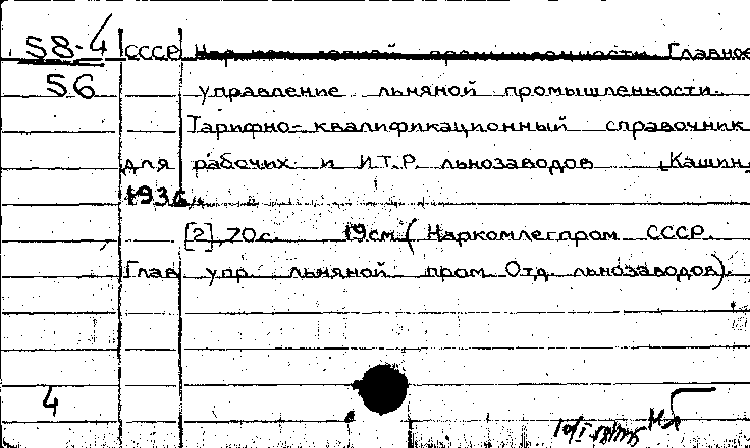 58-4
56
СССР Нар. ком. легкой промышленности Главное
управление льняной промышленности.
Тарифно-квалификационный справочник
для рабочих и И.Т.Р. льнозаводов [Кашин,
1936]
[2], 70 с. 19 см. (Наркомлегпром СССР.
Глав упр. льняной пром. Отд. льнозаводов).
4